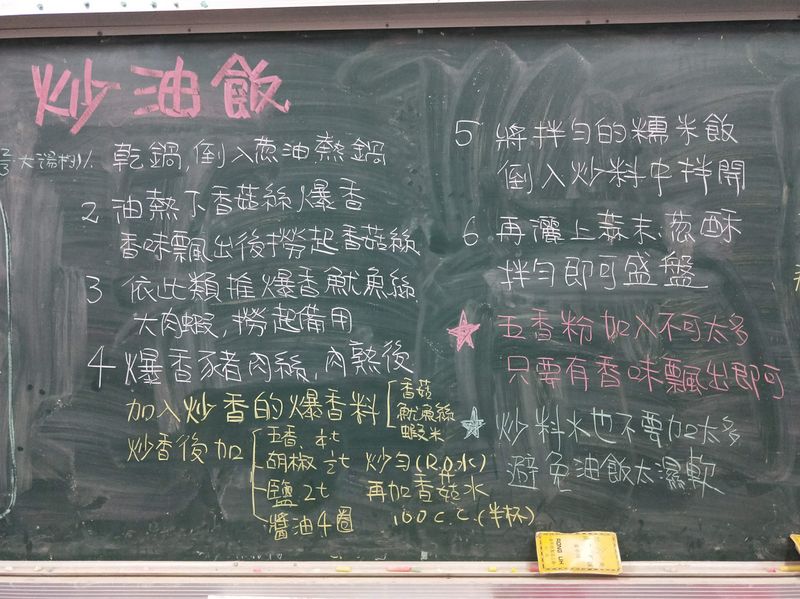 炒油飯
大湯杓 1 乾鍋,倒入蔥油熱鍋
2 油熱下香菇絲爆香
香味飄出後撈起香菇絲
3 依此類推爆香魷魚絲
大肉蝦,撈起備用
4 爆香豬肉絲,肉熟後
加入炒香的爆香料
香菇
魷魚絲
蝦米
炒香後加
五香 t
胡椒 t 炒勻(R.O水)
鹽 2t 再加香菇水
醬油4圈 100 C.C.(半杯)
5 將拌勻的糯米飯
倒入炒料中拌開
6 再灑上蒜末、蔥酥
拌勻即可盛盤
☆ 五香粉加入不可太多
只要有香味飄出即可
☆ 炒料水也不要加太多
避免油飯太濕軟